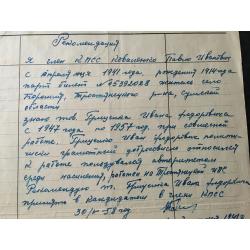 Рекомендация
Я член КПСС Коваленко Павло Иванович
с апреля м-ца 1941 года, рождения 1914 года
парт билет № 45392028 житель села
Тростянецкого р-на, Сумской
области
знаю тов. Грищенка Ивана Федоровича
с 1947 года по 1957 год. при совместной
работе. Грищенко Иван Федорович
грамотной добросовестно относится
к работе пользовался авторитетом
среди населения, работая на Тростянецкой
Рекомендую т. Грищенка Ивана Федоровича
принять в кандидаты в члены КПСС
30/ 58 год